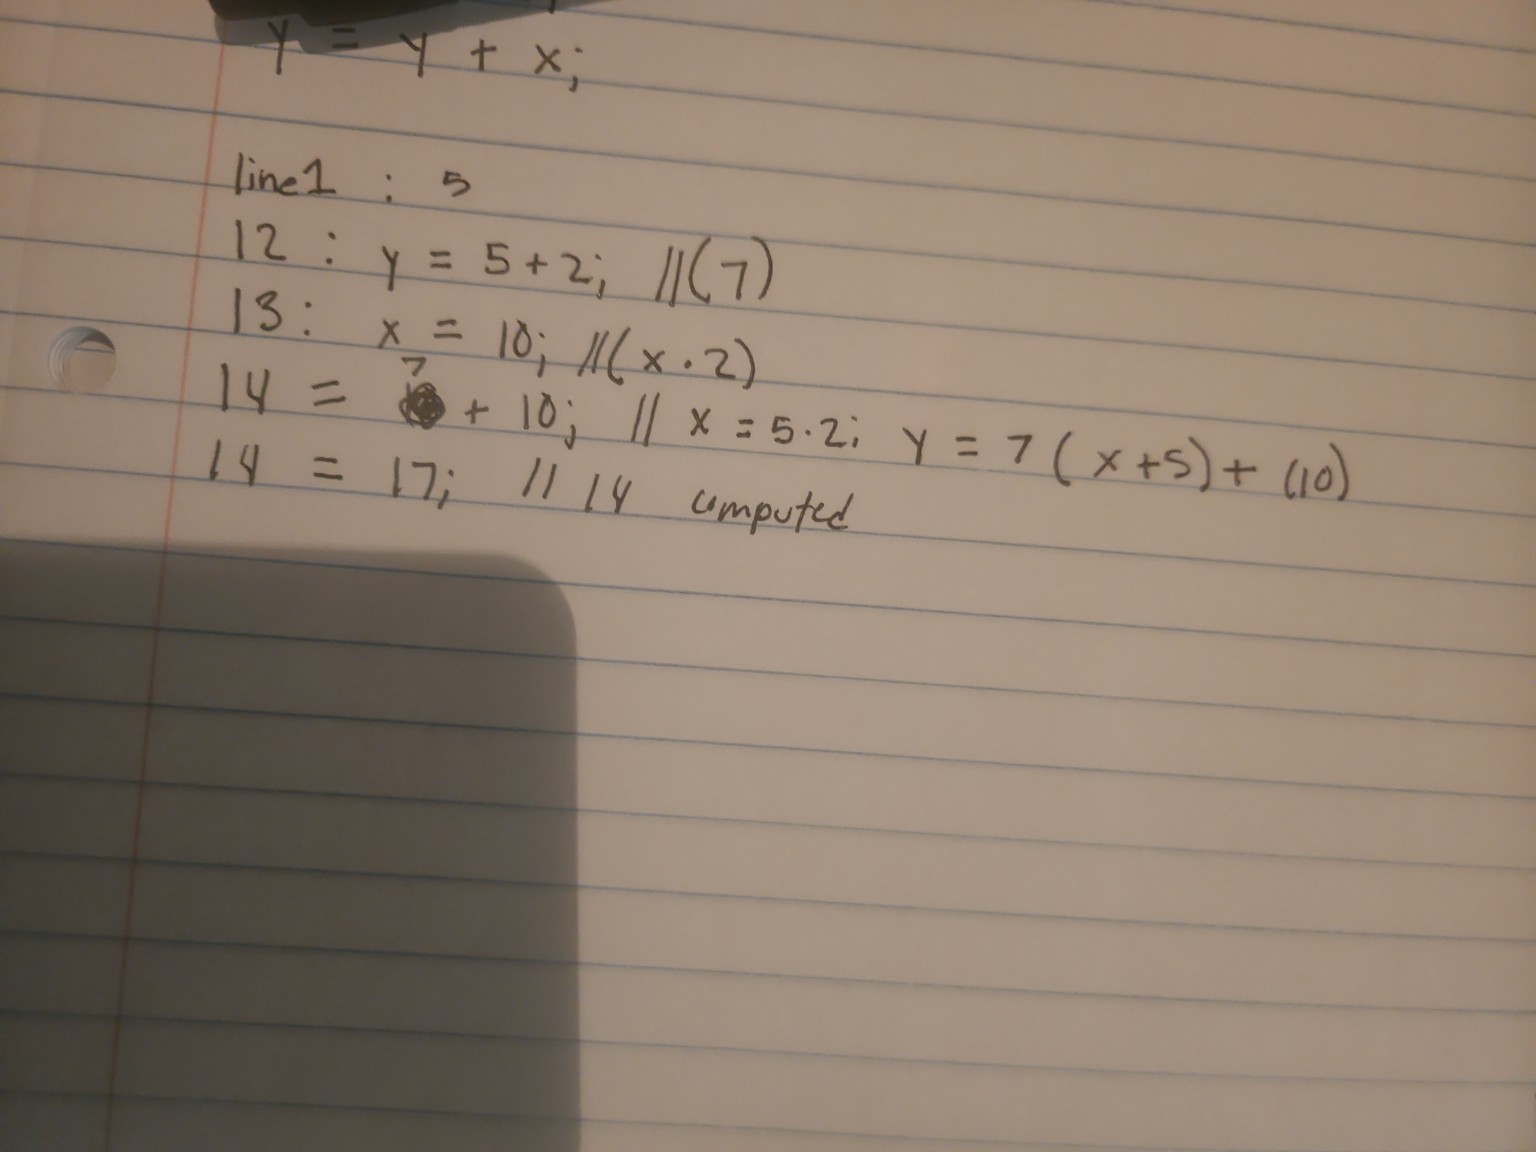 y = y + x;
line1 : 5
l2 : y = 5 + 2; //(7)
l3: x = 10; //(x · 2)
l4 = 7 + 10; // x = 5 · 2; y = 7 ( x + 5 ) + (10)
l4 = 17; // l4 computed